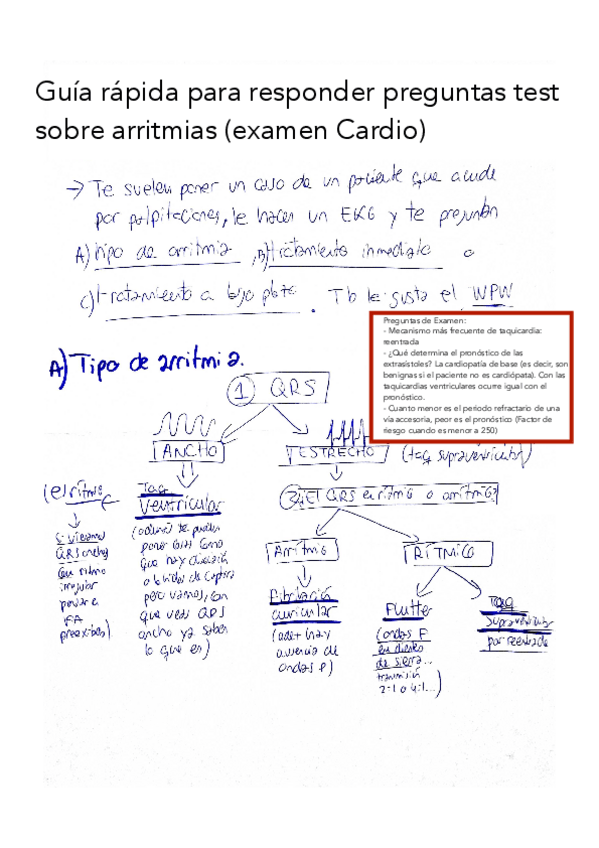 Guía rápida para responder preguntas test
sobre arritmias (examen Cardio)
→ Te suelen poner un caso de un paciente que acude
por palpitaciones, le hacen un EKG y te preguntan
A) tipo de arritmia, B) tratamiento inmediato o
C) tratamiento a largo plazo. Tb le gusta el WPW
Preguntas de Examen:
- Mecanismo más frecuente de taquicardia:
reentrada
- ¿Qué determina el pronóstico de las
extrasístoles? La cardiopatía de base (es decir, son
benignas si el paciente no es cardiópata). Con las
taquicardias ventriculares ocurre igual con el
pronóstico.
- Cuanto menor es el periodo refractario de una
vía accesoria, peor es el pronóstico (Factor de
riesgo cuando es menor a 250)
A) Tipo de arritmia.
1 QRS
ANCHO
ESTRECHO (taq supraventricular)
(es rítmico
↓
si vieramos
QRS ancho
con ritmo
irregular
pensar a
FA
preexcitada)
Taq
Ventricular
(además te pueden
poner cosas como
que hay disociación
o latidos de captura
pero vamos, con
que veas QRS
ancho ya sabes
lo que es)
2 ¿El QRS es rítmico o arrítmico?
Arrítmico
RÍTMICO
Fibrilación
auricular
(adem hay
ausencia de
ondas P)
Flutter
(ondas F
en dientes
de sierra...
transmisión
2:1 o 4:1...)
Taq
supraventricular
por reentrada